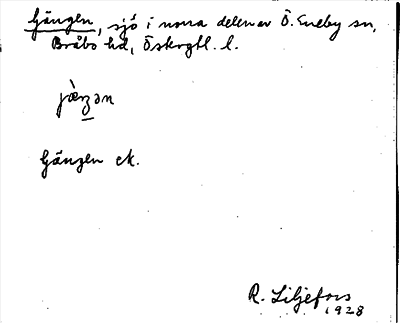 Gängen, sjö i norra delen av Ö. Eneby sn,
Bråbo hd, Östergtl. l.
Gängen ek.
R. Liljefors
1928